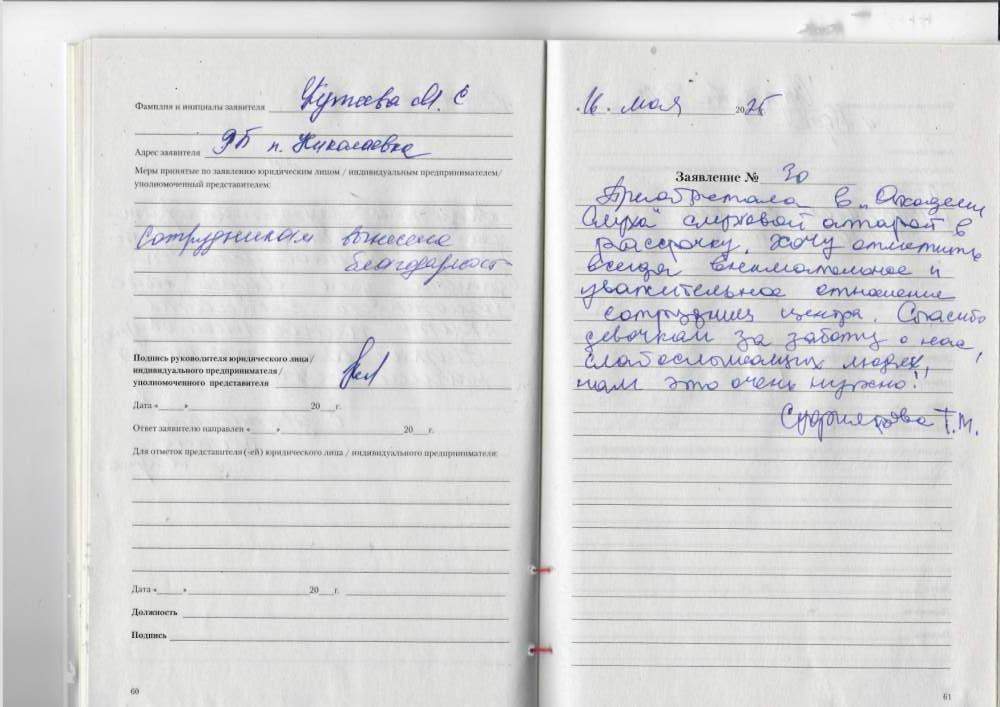 Фамилия и инициалы заявителя Кутеева М. С
Адрес заявителя РБ п. Николаевка
Меры принятые по заявлению юридическим лицом / индивидуальным предпринимателем/
уполномоченный представителем:
Сотрудникам вынесена
благодарность
Подпись руководителя юридического лица /
индивидуального предпринимателя /
уполномоченного представителя
Дата «_____»____________20___г.
Ответ заявителю направлен «_____»____________20___г.
Для отметок представителя (-ей) юридического лица / индивидуального предпринимателя:
Дата «_____»____________20___г.
Должность
Подпись
60
16. мая 2025
Заявление № 30
Приобретала в „Академии
Слуха" слуховой аппарат в
рассрочку. Хочу отметить
всегда внимательное и
уважительное отношение
сотрудниц центра. Спасибо
девочкам за заботу о нас,
слабослышащих людях,
нам это очень нужно!!
Т.М.
61